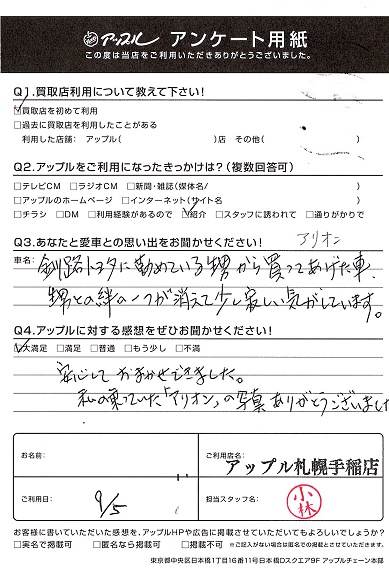 アップル アンケート用紙
この度は当店をご利用いただきありがとうございました。
Q1.買取店利用について教えて下さい!
☑買取店を初めて利用
□過去に買取店を利用したことがある
利用した店舗: アップル( )店 その他( )
Q2.アップルをご利用になったきっかけは?(複数回答可)
□テレビCM □ラジオCM □新聞・雑誌(媒体名/ )
□アップルのホームページ □インターネット(サイト名 )
□チラシ □DM □利用経験があるので ☑紹介 □スタッフに誘われて □通りがかりで
Q3.あなたと愛車との思い出をお聞かせください! アリオン
車名:
釧路トヨタに勤めている甥から買ってあげた車.
甥との絆の一つが消えて少し寂しい気がしています。
Q4.アップルに対する感想をぜひお聞かせください!
☑大満足 □満足 □普通 □もう少し □不満
安心しておまかせできました。
私の乗っていた「アリオン」の写真ありがとうございました
お名前:
ご利用店名:
アップル札幌手稲店
ご利用日: 9/5
担当スタッフ名: 小林
お客様に書いていただいた感想を、アップルHPや広告に掲載させていただいてもよろしいでしょうか?
□実名で掲載可 □匿名なら掲載可 □掲載不可 ※ご記入がない場合は匿名での掲載とさせていただきます。
東京都中央区日本橋1丁目16番11号日本橋Dスクエア9F アップルチェーン本部